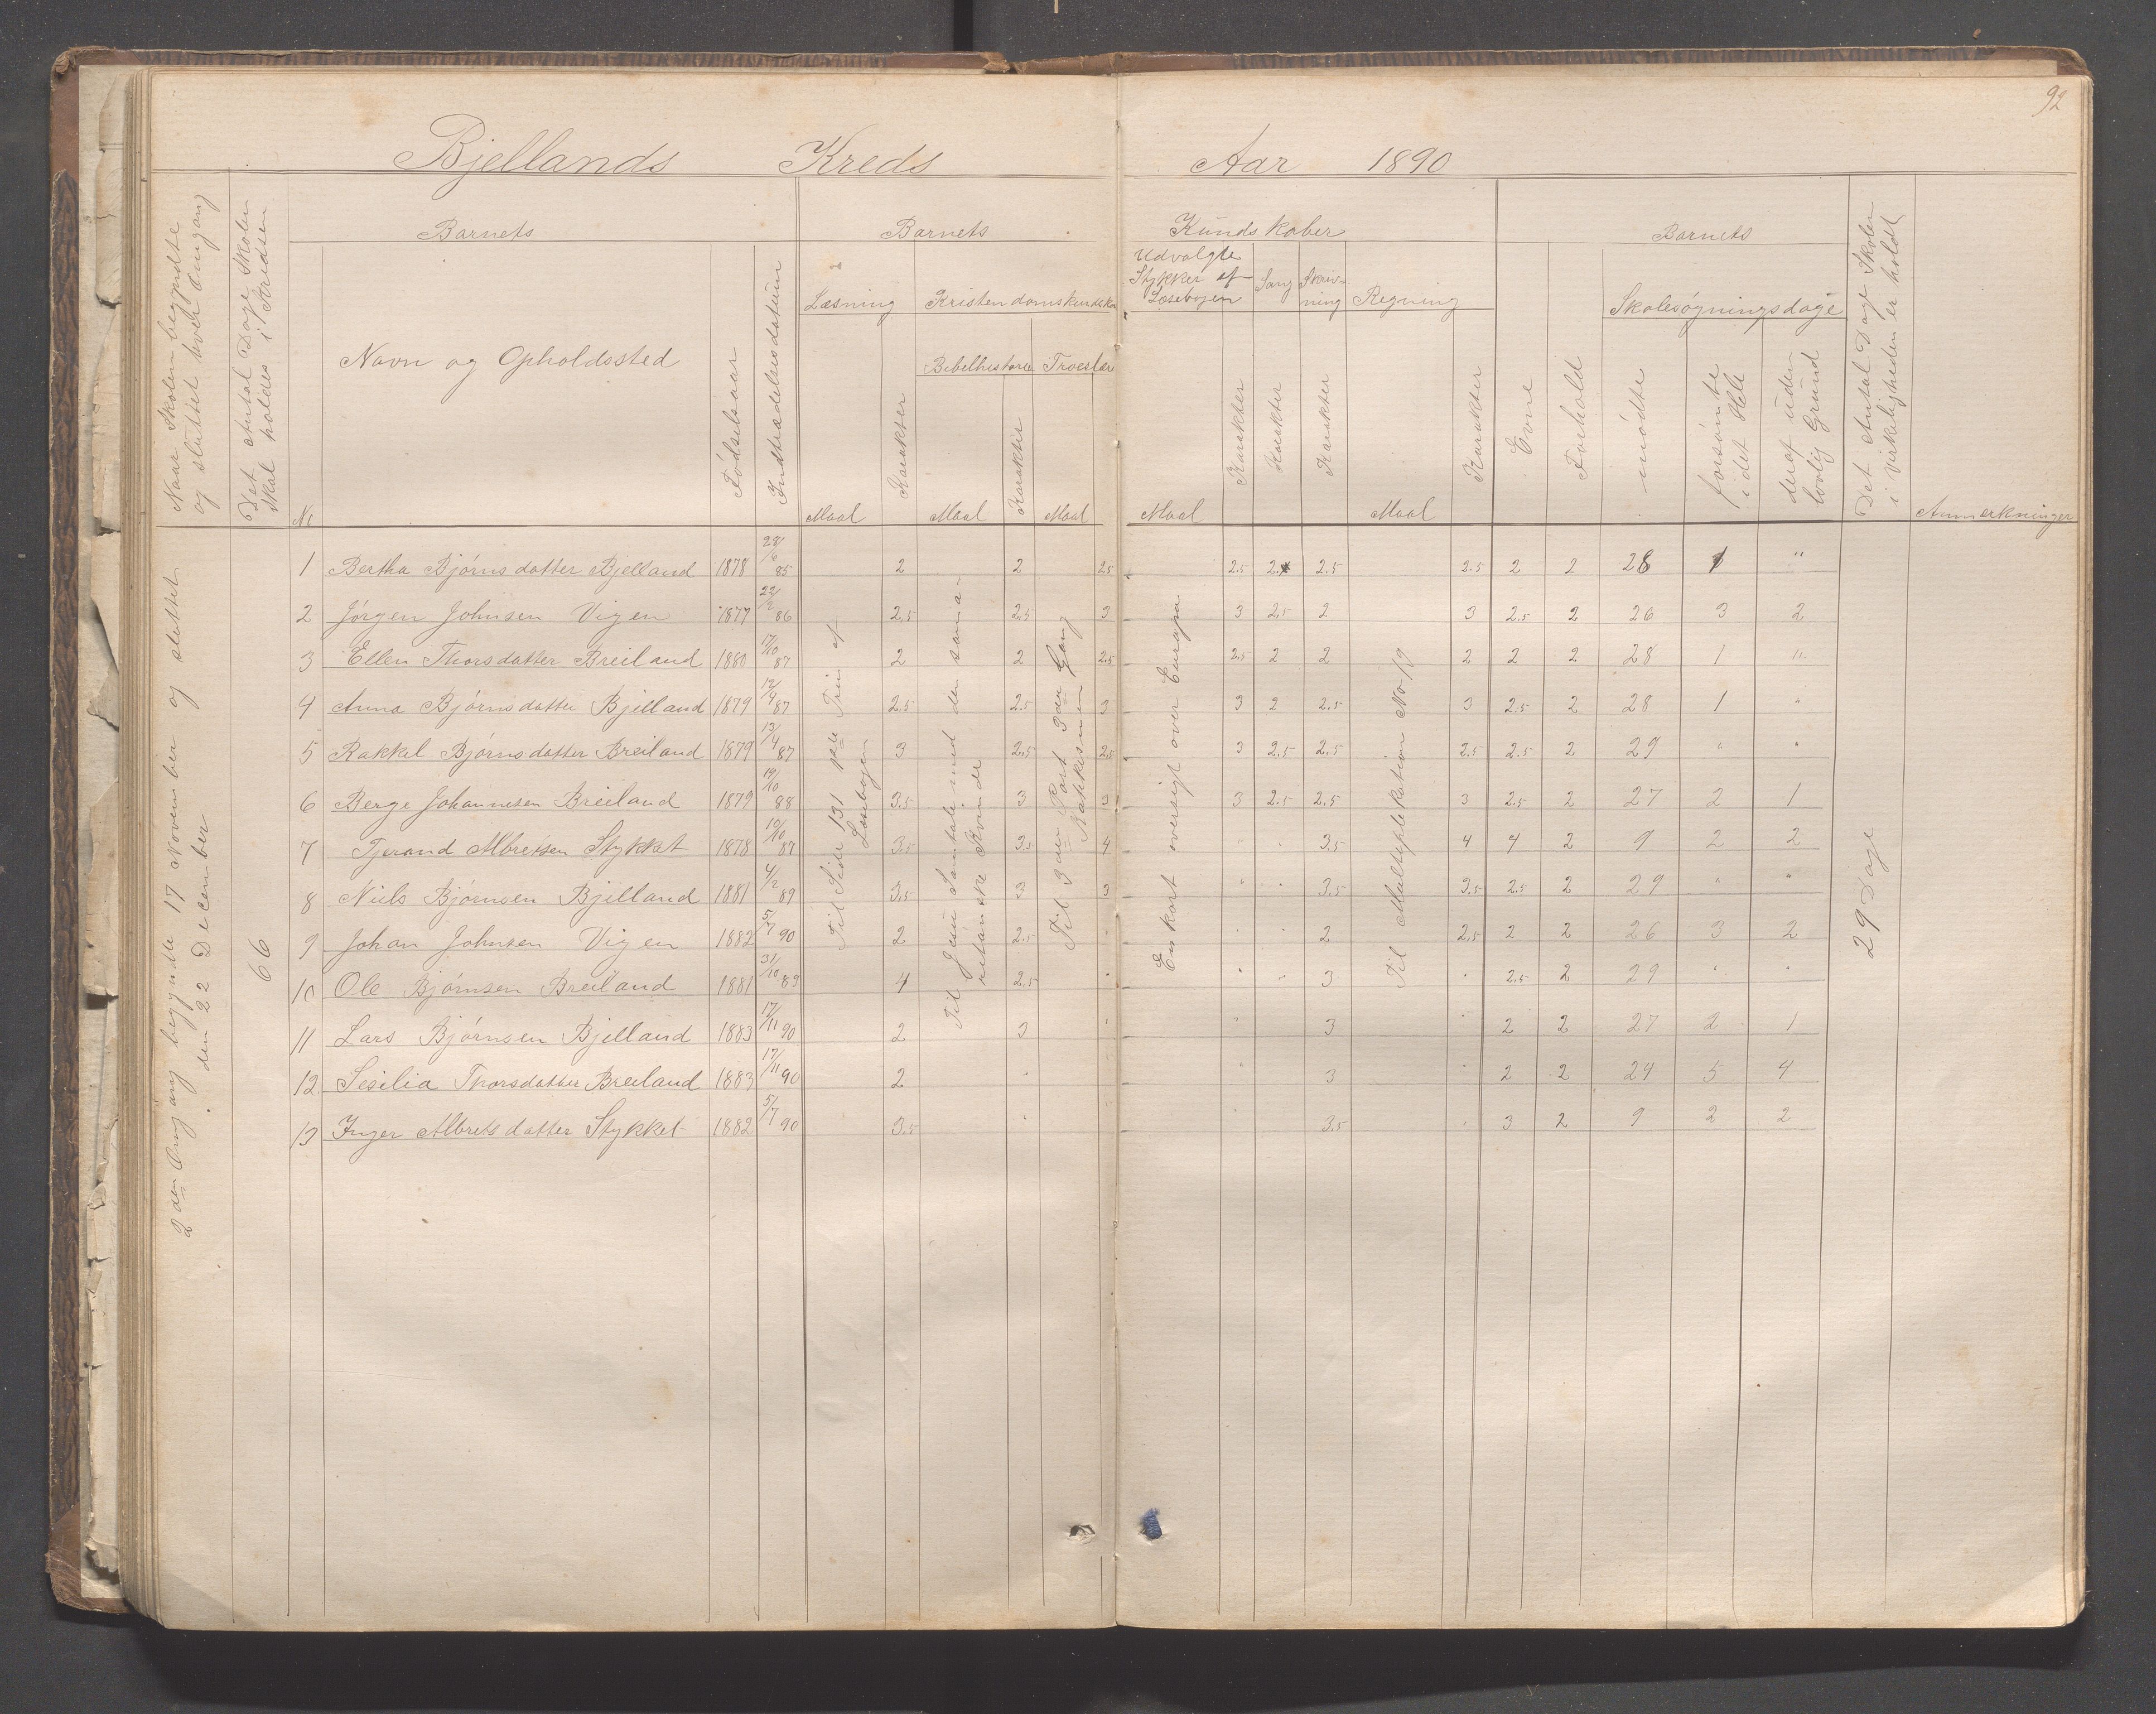 92
Bjellands Kreds Aar 1890
Naar Skolen begyndte
og sluttet hver Omgang
Det Antal Dage Skolen
skal holdes i Kredsen
Barnets Barnets Kundskaber Barnets
No
Navn og Opholdssted
Fødselsaar
Indtrædelsesdatum
Læsning Kristendomskundska
Bibelhistorie Troeslære
Maal Karakter Maal Karakter Maal
Udvalgte
Stykker af
Læsebogen
Sang
Skriv-
ning
Regning
Maal Karakter Karakter Karakter Maal Karakter
Evne
Forhold
Skolesøgningsdage
mødte
forsømte
i det Hele
deraf uden
lovlig Grund
Det Antal Dage Skolen
i Virkeligheden er holdt
Anmerkninger
2den Omgang begyndte 17 November og sluttet
den 22 December
66
Til Side 131 1ste Trin af
Læsebogen
Til Jesu Samtale med den sama-
ritanske Kvinde
Til 3die Part 3die Gang
Katekismen
En kort oversigt over Europa
Til Multiplekation No 19
29 Dage
1 Bertha Bjørnsdatter Bjelland 1878 28/6 85 2 2 2.5 2.5 2. 2.5 2.5 2 2 28 1 "
2 Jørgen Johnsen Vigen 1877 22/2 86 2.5 2.5 3 3 2.5 2 3 2.5 2 26 3 2
3 Ellen Thorsdatter Breiland 1880 17/10 87 2 2 2.5 2.5 2 2 2 2 2 28 1 "
4 Anna Bjørnsdatter Bjelland 1879 12/4 87 2.5 2.5 3 3 2 2.5 3 2.5 2 28 1 "
5 Rakkel Bjørnsdatter Breiland 1879 13/4 87 3 2.5 2.5 3 2.5 2.5 2.5 2.5 2 29 " "
6 Berge Johannesen Breiland 1879 19/10 88 3.5 3 3 3 2.5 2.5 3 2.5 2 27 2 1
7 Tjerand Albretsen Stykket 1878 10/10 87 3.5 3.5 4 " " 3.5 4 4 2 9 2 2
8 Niels Bjørnsen Bjelland 1881 4/2 89 3.5 3 3 " " 3.5 3.5 2.5 2 29 " "
9 Johan Johnsen Vigen 1882 5/7 90 2 2.5 " " " 2 2.5 2 2 26 3 2
10 Ole Bjørnsen Breiland 1881 31/10 89 4 2.5 " " " 3 " 2.5 2 29 " "
11 Lars Bjørnsen Bjelland 1883 17/11 90 2 3 " " 3 2 2 27 2 1
12 Sesilia Thorsdatter Breiland 1883 17/11 90 2 " " 3 2 2 24 5 4
13 Inger Albretsdatter Stykket 1882 5/7 90 3.5 " " 3.5 " 3 2 9 2 2